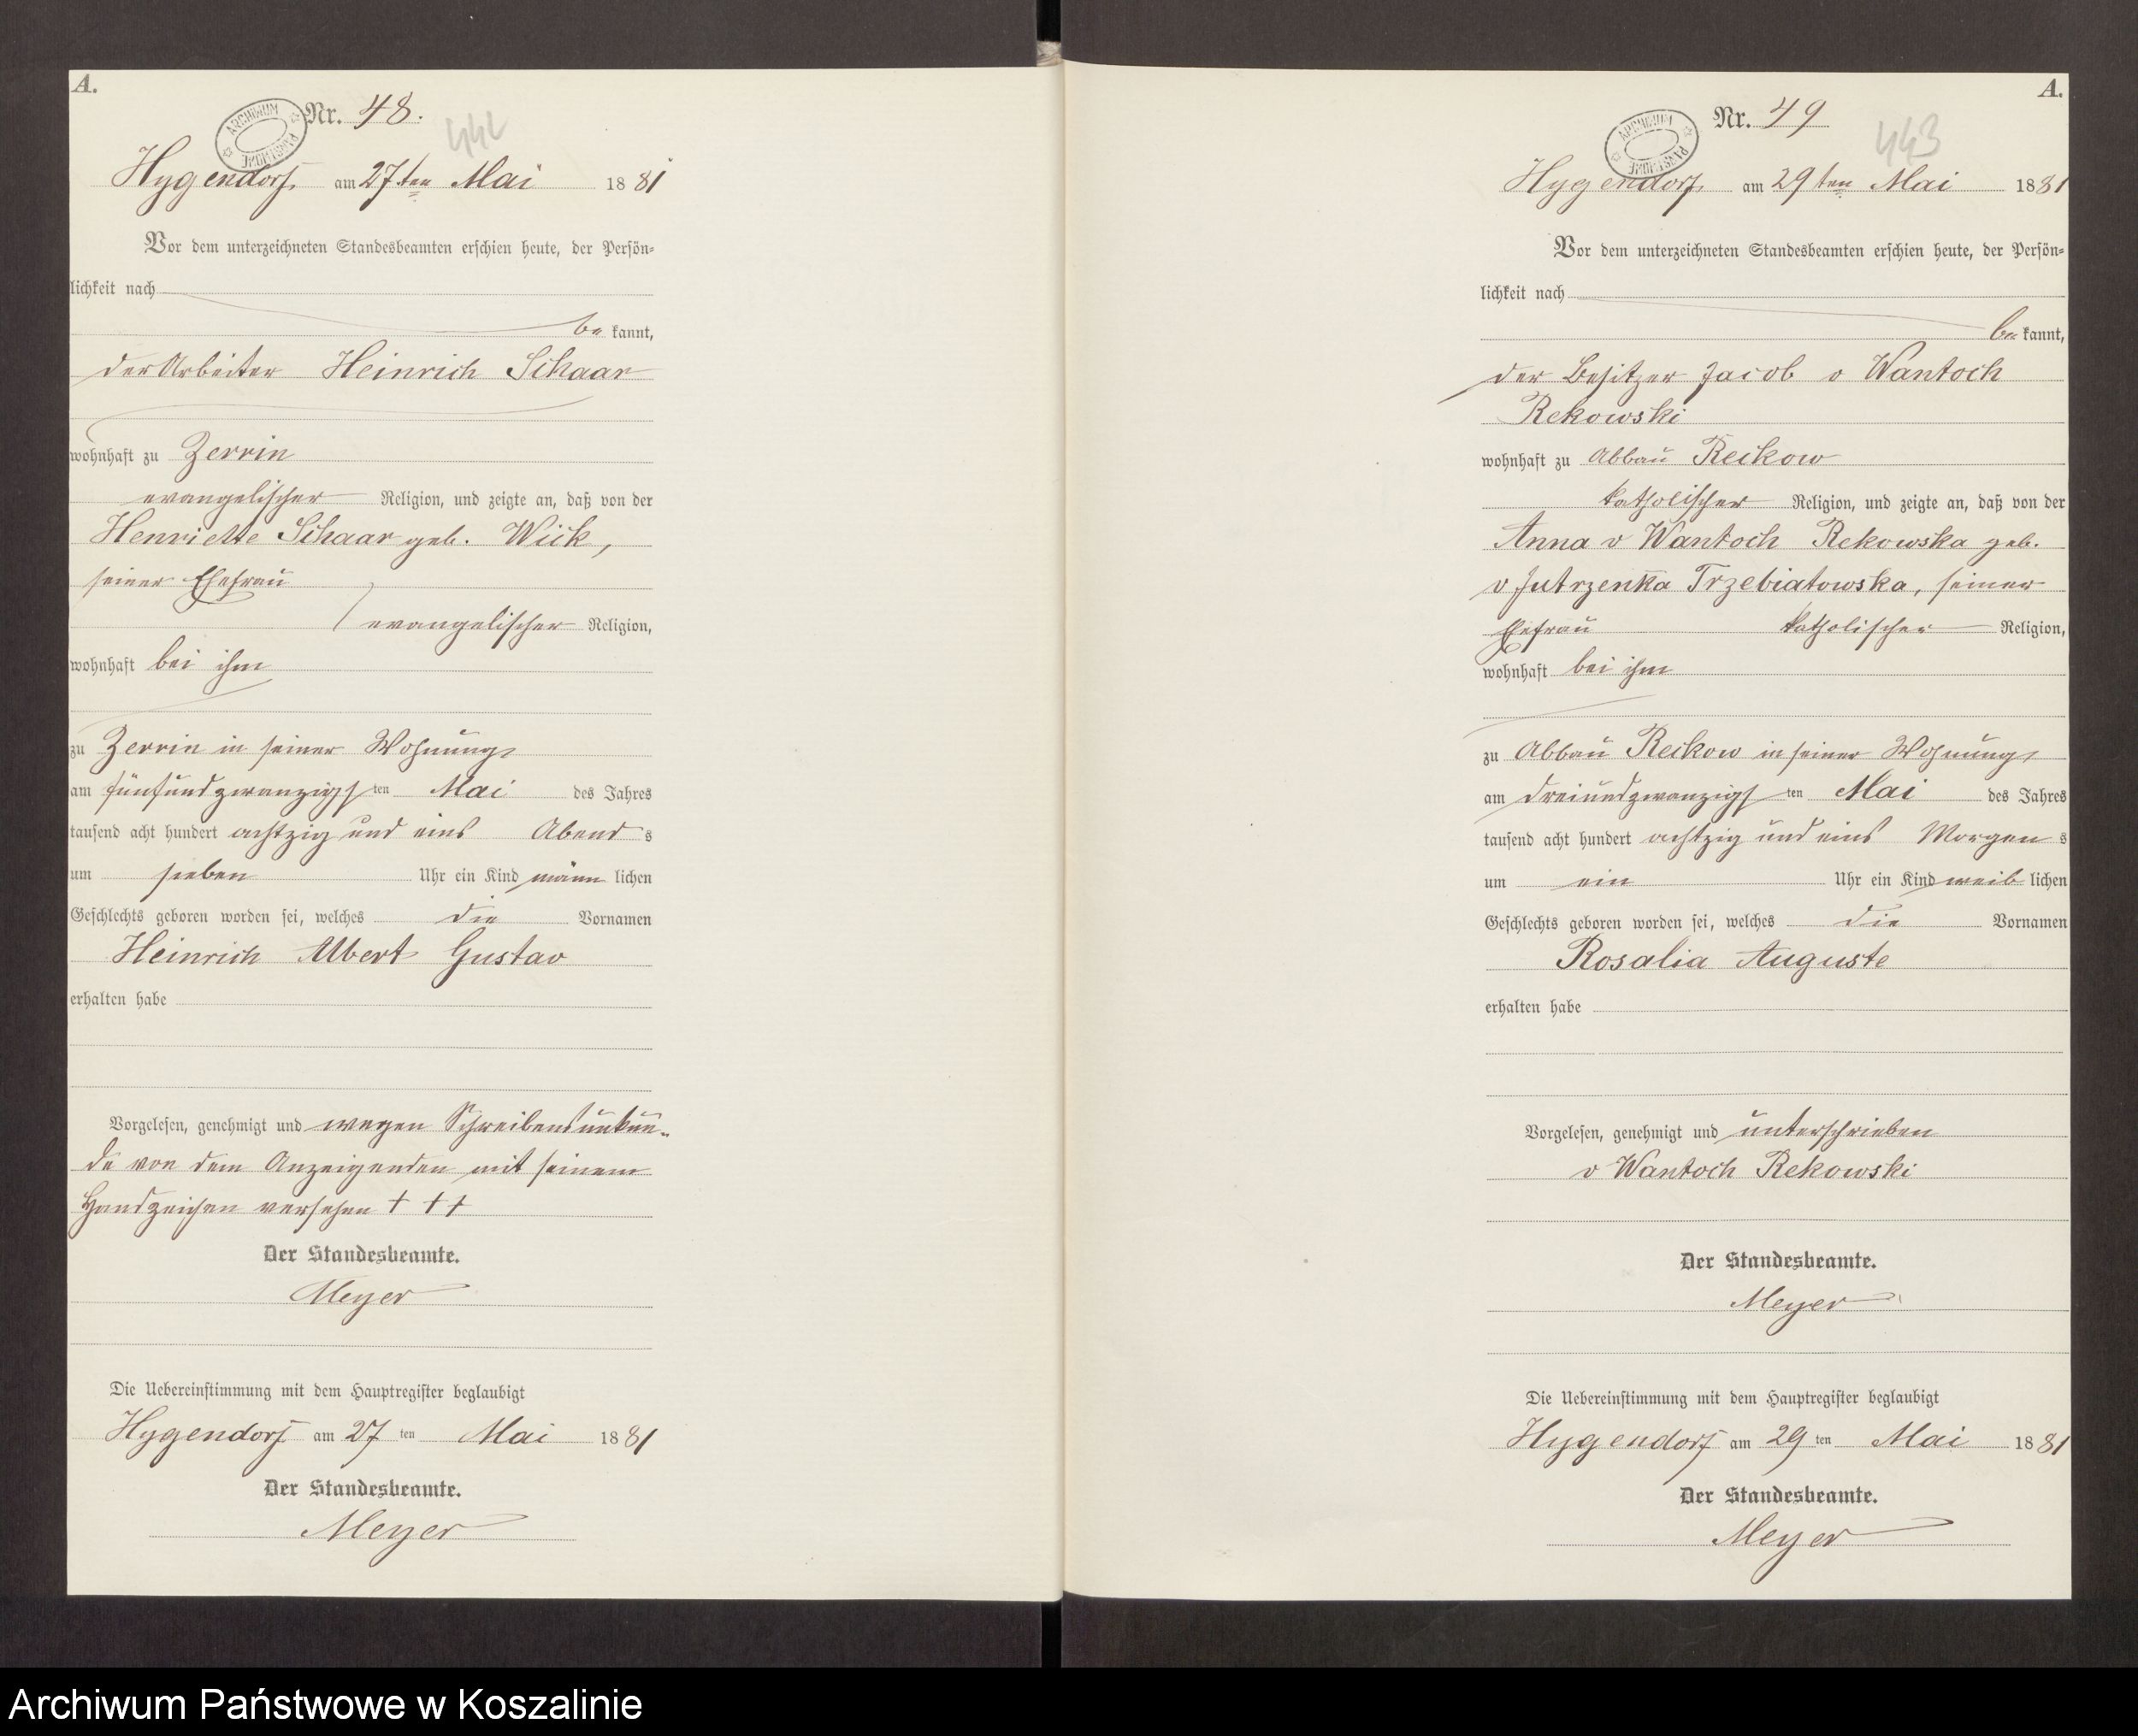 A.
ARCHIWUM PAŃSTWOWE
Nr. 48.
442
Hygendorf, am 27ten Mai 1881
Vor dem unterzeichneten Standesbeamten erschien heute, der Persön-
lichkeit nach
be kannt,
der Arbeiter Heinrich Schaar
wohnhaft zu Zerrin
evangelischer Religion, und zeigte an, daß von der
Henriette Schaar geb. Wick,
seiner Ehefrau
evangelischer Religion,
wohnhaft bei ihm
zu Zerrin in seiner Wohnung,
am fünfundzwanzigsten Mai des Jahres
tausend acht hundert achtzig und eins Abends
um sieben Uhr ein Kind männlichen
Geschlechts geboren worden sei, welches die Vornamen
Heinrich Albert Gustav
erhalten habe
Vorgelesen, genehmigt und wegen Schreibensunkun-
de von dem Anzeigenden mit seinem
Handzeichen versehen + + +
Der Standesbeamte.
Meyer
Die Uebereinstimmung mit dem Hauptregister beglaubigt
Hygendorf am 27 ten Mai 1881
Der Standesbeamte.
Meyer
A.
ARCHIWUM PAŃSTWOWE
Nr. 49
443
Hygendorf, am 29ten Mai 1881
Vor dem unterzeichneten Standesbeamten erschien heute, der Persön-
lichkeit nach
be kannt,
der Besitzer Jacob v Wantoch
Rekowski
wohnhaft zu Abbau Reckow
katholischer Religion, und zeigte an, daß von der
Anna v Wantoch Rekowska geb.
v Jutrzenka Trzebiatowska, seiner
Ehefrau katholischer Religion,
wohnhaft bei ihm
zu Abbau Reckow in seiner Wohnung,
am dreiundzwanzigsten Mai des Jahres
tausend acht hundert achtzig und eins Morgens
um ein Uhr ein Kind weiblichen
Geschlechts geboren worden sei, welches die Vornamen
Rosalia Auguste
erhalten habe
Vorgelesen, genehmigt und unterschrieben
v Wantoch Rekowski
Der Standesbeamte.
Meyer
Die Uebereinstimmung mit dem Hauptregister beglaubigt
Hygendorf am 29 ten Mai 1881
Der Standesbeamte.
Meyer
Archiwum Państwowe w Koszalinie